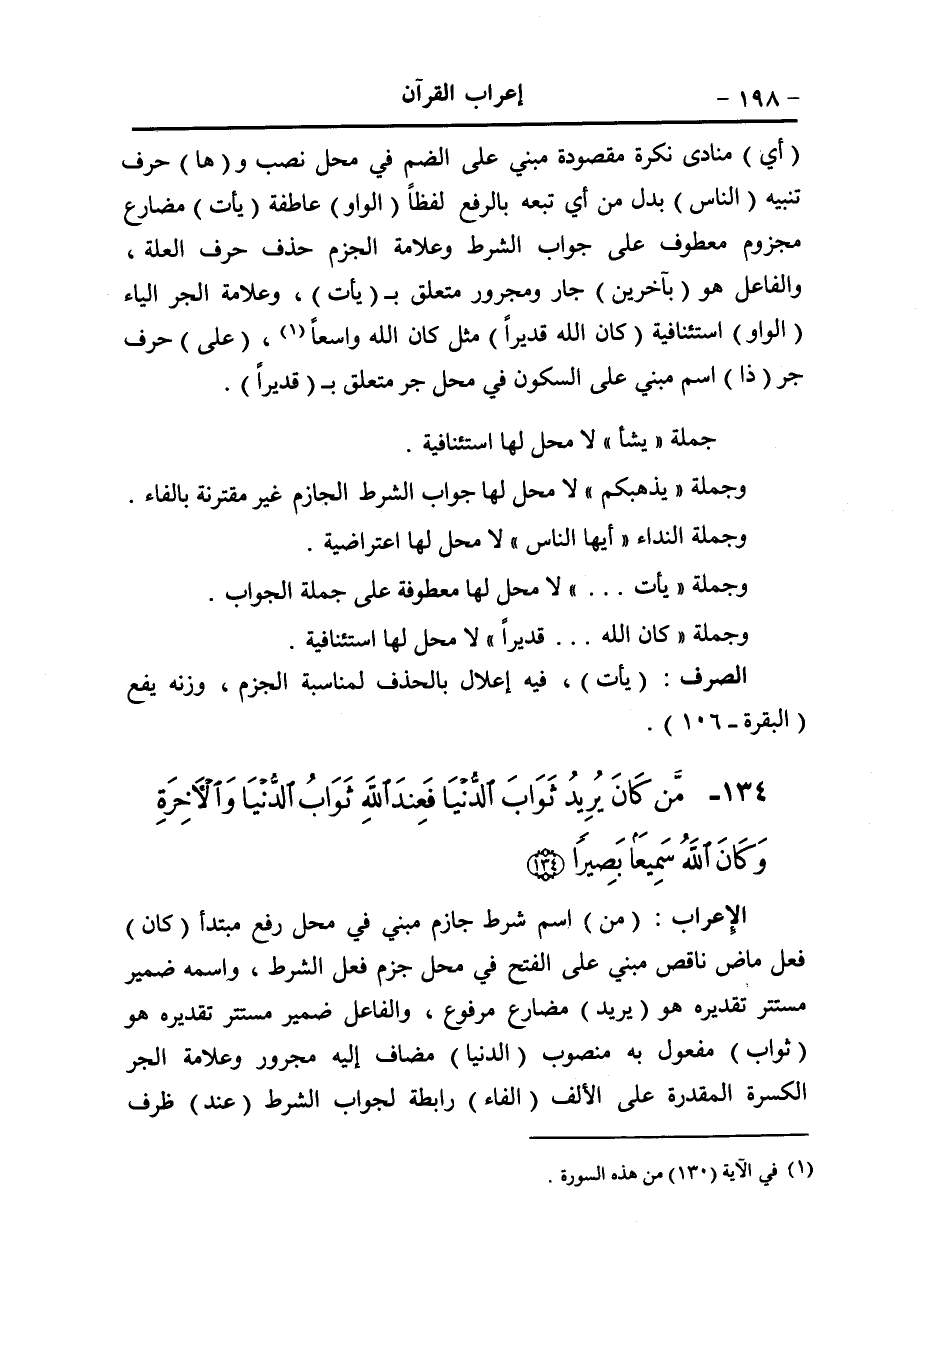 - ١٩٨ - إعراب القرآن
( أي ) منادى نكرة مقصودة مبني على الضم في محل نصب و ( ها ) حرف
تنبيه ( الناس ) بدل من أي تبعه بالرفع لفظاً ( الواو ) عاطفة ( يأت ) مضارع
مجزوم معطوف على جواب الشرط وعلامة الجزم حذف حرف العلة ،
والفاعل هو ( بآخرين ) جار ومجرور متعلق بـ ( يأت ) ، وعلامة الجر الياء
( الواو ) استئنافية ( كان الله قديراً ) مثل كان الله واسعاً (١) ، ( على ) حرف
جر ( ذا ) اسم مبني على السكون في محل جر متعلق بـ ( قديراً ) .
جملة « يشأ » لا محل لها استئنافية .
وجملة « يذهبكم » لا محل لها جواب الشرط الجازم غير مقترنة بالفاء .
وجملة النداء « أيها الناس » لا محل لها اعتراضية .
وجملة « يأت . . . » لا محل لها معطوفة على جملة الجواب .
وجملة « كان الله . . . قديراً » لا محل لها استئنافية .
الصرف : ( يأت ) ، فيه إعلال بالحذف لمناسبة الجزم ، وزنه يفع
( البقرة ـ ١٠٦ ) .
١٣٤- مَّن كَانَ يُرِيدُ ثَوَابَ ٱلدُّنْيَا فَعِندَ ٱللَّهِ ثَوَابُ ٱلدُّنْيَا وَٱلْآخِرَةِ
وَكَانَ ٱللَّهُ سَمِيعًا بَصِيرًا ﴿١٣٤﴾
الإعراب : ( من ) اسم شرط جازم مبني في محل رفع مبتدأ ( كان )
فعل ماض ناقص مبني على الفتح في محل جزم فعل الشرط ، واسمه ضمير
مستتر تقديره هو ( يريد ) مضارع مرفوع ، والفاعل ضمير مستتر تقديره هو
( ثواب ) مفعول به منصوب ( الدنيا ) مضاف إليه مجرور وعلامة الجر
الكسرة المقدرة على الألف ( الفاء ) رابطة لجواب الشرط ( عند ) ظرف
(١) في الآية (١٣٠) من هذه السورة .